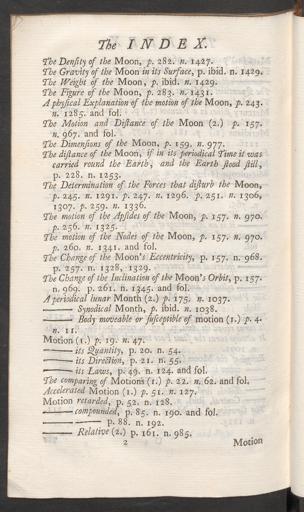 The INDEX.
The Density of the Moon, p. 282. n. 1427.
The Gravity of the Moon in its Surface, p. ibid. n. 1429.
The Weight of the Moon, p. ibid. n. 1429.
The Figure of the Moon, p. 283. n. 1431.
A physical Explanation of the motion of the Moon, p. 243.
n. 1285. and fol.
The Motion and Distance of the Moon (2.) p. 157.
n. 967. and fol.
The Dimensions of the Moon, p. 159. n. 977.
The distance of the Moon, if in its periodical Time it was
carried round the Earth, and the Earth stood still,
p. 228. n. 1253.
The Determination of the Forces that disturb the Moon,
p. 245. n. 1291. p. 247. n. 1296. p. 251. n. 1306,
1307. p. 259. n. 1336.
The motion of the Apsides of the Moon, p. 157. n. 970.
p. 256. n. 1325.
The motion of the Nodes of the Moon, p. 157. n. 970.
p. 260. n. 1341. and fol.
The Change of the Moon's Eccentricity, p. 157. n. 968.
p. 257. n. 1328, 1329.
The Change of the Inclination of the Moon's Orbit, p. 157.
n. 969. p. 261. n. 1345. and fol.
A periodical lunar Month (2.) p. 175. n. 1037.
——— Synodical Month, p. ibid. n. 1038.
——— Body moveable or susceptible of motion (1.) p. 4.
n. 11.
Motion (1.) p. 19. n. 47.
——— its Quantity, p. 20. n. 54.
——— its Direction, p. 21. n. 55.
——— its Laws, p. 49. n. 124. and fol.
The comparing of Motions (1.) p. 22. n. 62. and fol.
Accelerated Motion (1.) p. 51. n. 127.
Motion retarded, p. 52. n. 128.
——— compounded, p. 85. n. 190. and fol.
——— ——— p. 88. n. 192.
——— Relative (2.) p. 161. n. 985.
2 Motion